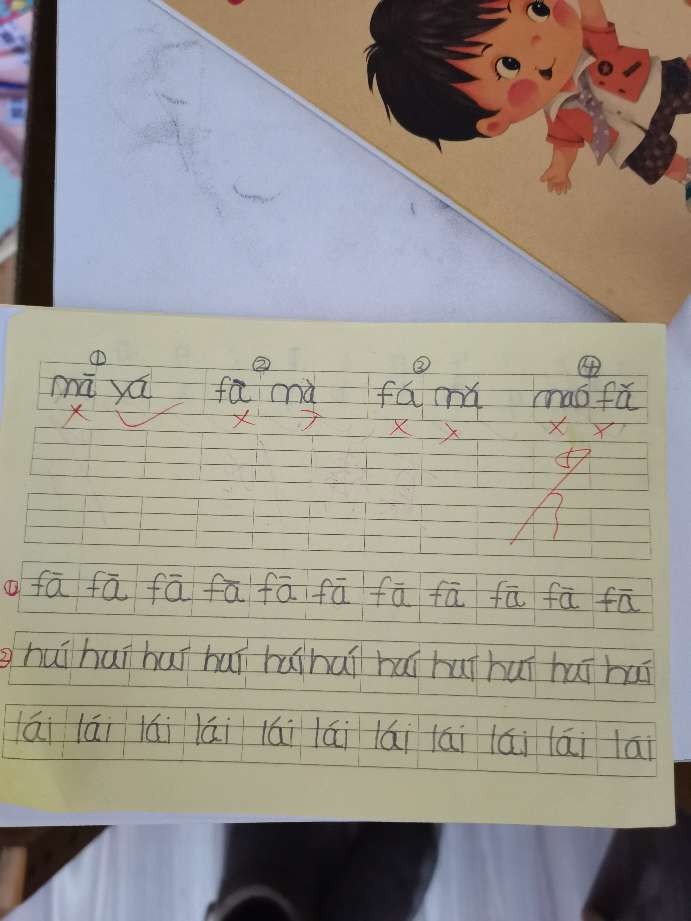 ① ② ③ ④
mā yá fā mà fá mǎ maó fǎ
① fā fā fā fā fā fā fā fā fā fā fā
② huí haí haí haí haí haí haí haí haí haí haí
lái lái lái lái lái lái lái lái lái lái lái